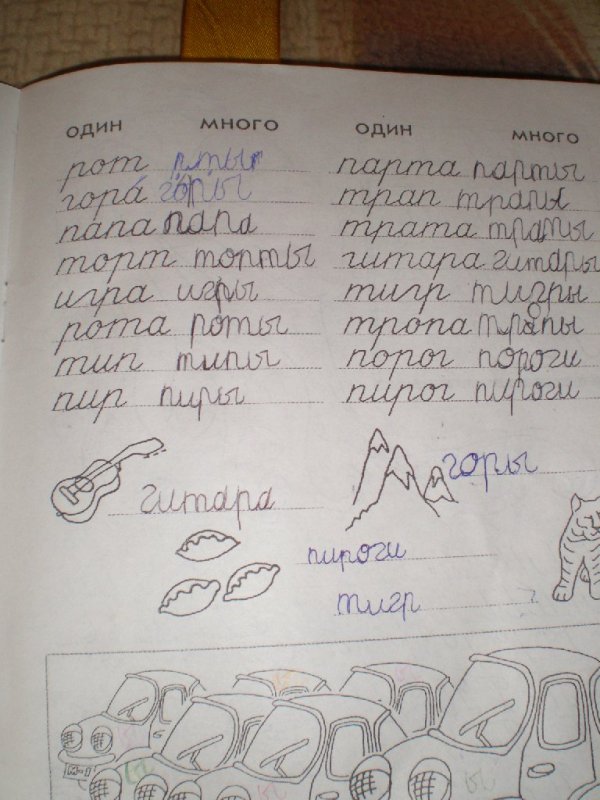 ОДИН МНОГО ОДИН МНОГО
рот рты парта парты
гора горы трап трапы
папа папа трата траты
торт торты гитара гитары
игра игры тигр тигры
рота роты тропа тропы
тип типы порог пороги
пир пиры пирог пироги
горы
гитара
пироги
тигр